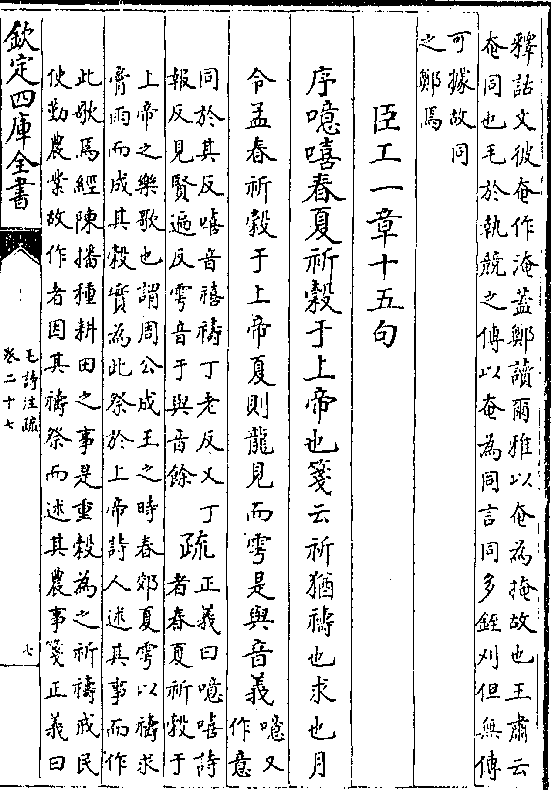 釋詁文彼奄作淹蓋鄭讀爾雅以奄為掩故也王肅云
奄同也毛於執競之傳以奄為同言同多銍刈但無傳
可據故同
之鄭焉
臣工一章十五句
序噫嘻春夏祈穀于上帝也箋云祈猶禱也求也月
令孟春祈穀于上帝夏則龍見而雩是與音義
噫又
作意
同於其反嘻音禧禱丁老反又丁
報反見賢遍反雩音于與音餘
疏
正義曰噫嘻詩
者春夏祈穀于
上帝之樂歌也謂周公成王之時春郊夏雩以禱求
膏雨而成其穀實為此祭於上帝詩人述其事而作
此歌焉經陳播種耕田之事是重穀為之祈禱戒民
使勤農業故作者因其禱祭而述其農事箋正義曰
欽定四庫全書
毛詩注疏
卷二十七
七